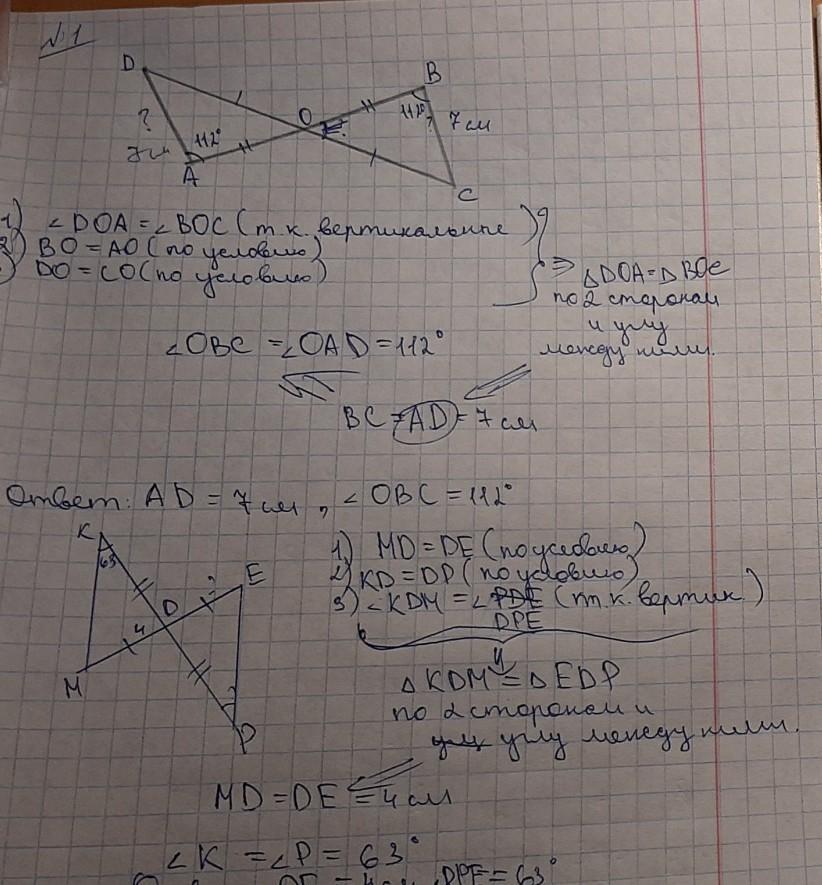 №1
D
B
O
?
7 см
112°
112°
?
7 см
A
C
1) ∠DOA = ∠BOC (т.к. вертикальные)
2) BO = AO (по условию)
) DO = CO (по условию)
⇒ △DOA = △BOC
по 2 сторонам
и углу
между ними.
∠OBC = ∠OAD = 112°
BC = AD = 7 см
Ответ: AD = 7 см, ∠OBC = 112°
K
63
D
?
E
4
M
?
P
1) MD = DE (по условию)
2) KD = DP (по условию)
3) ∠KDM = ∠PDE (т.к. вертик.)
DPE
△KDM = △EDP
по 2 сторонам и
углу между ними.
MD = DE = 4 см
∠K = ∠P = 63°
DPE = 63°